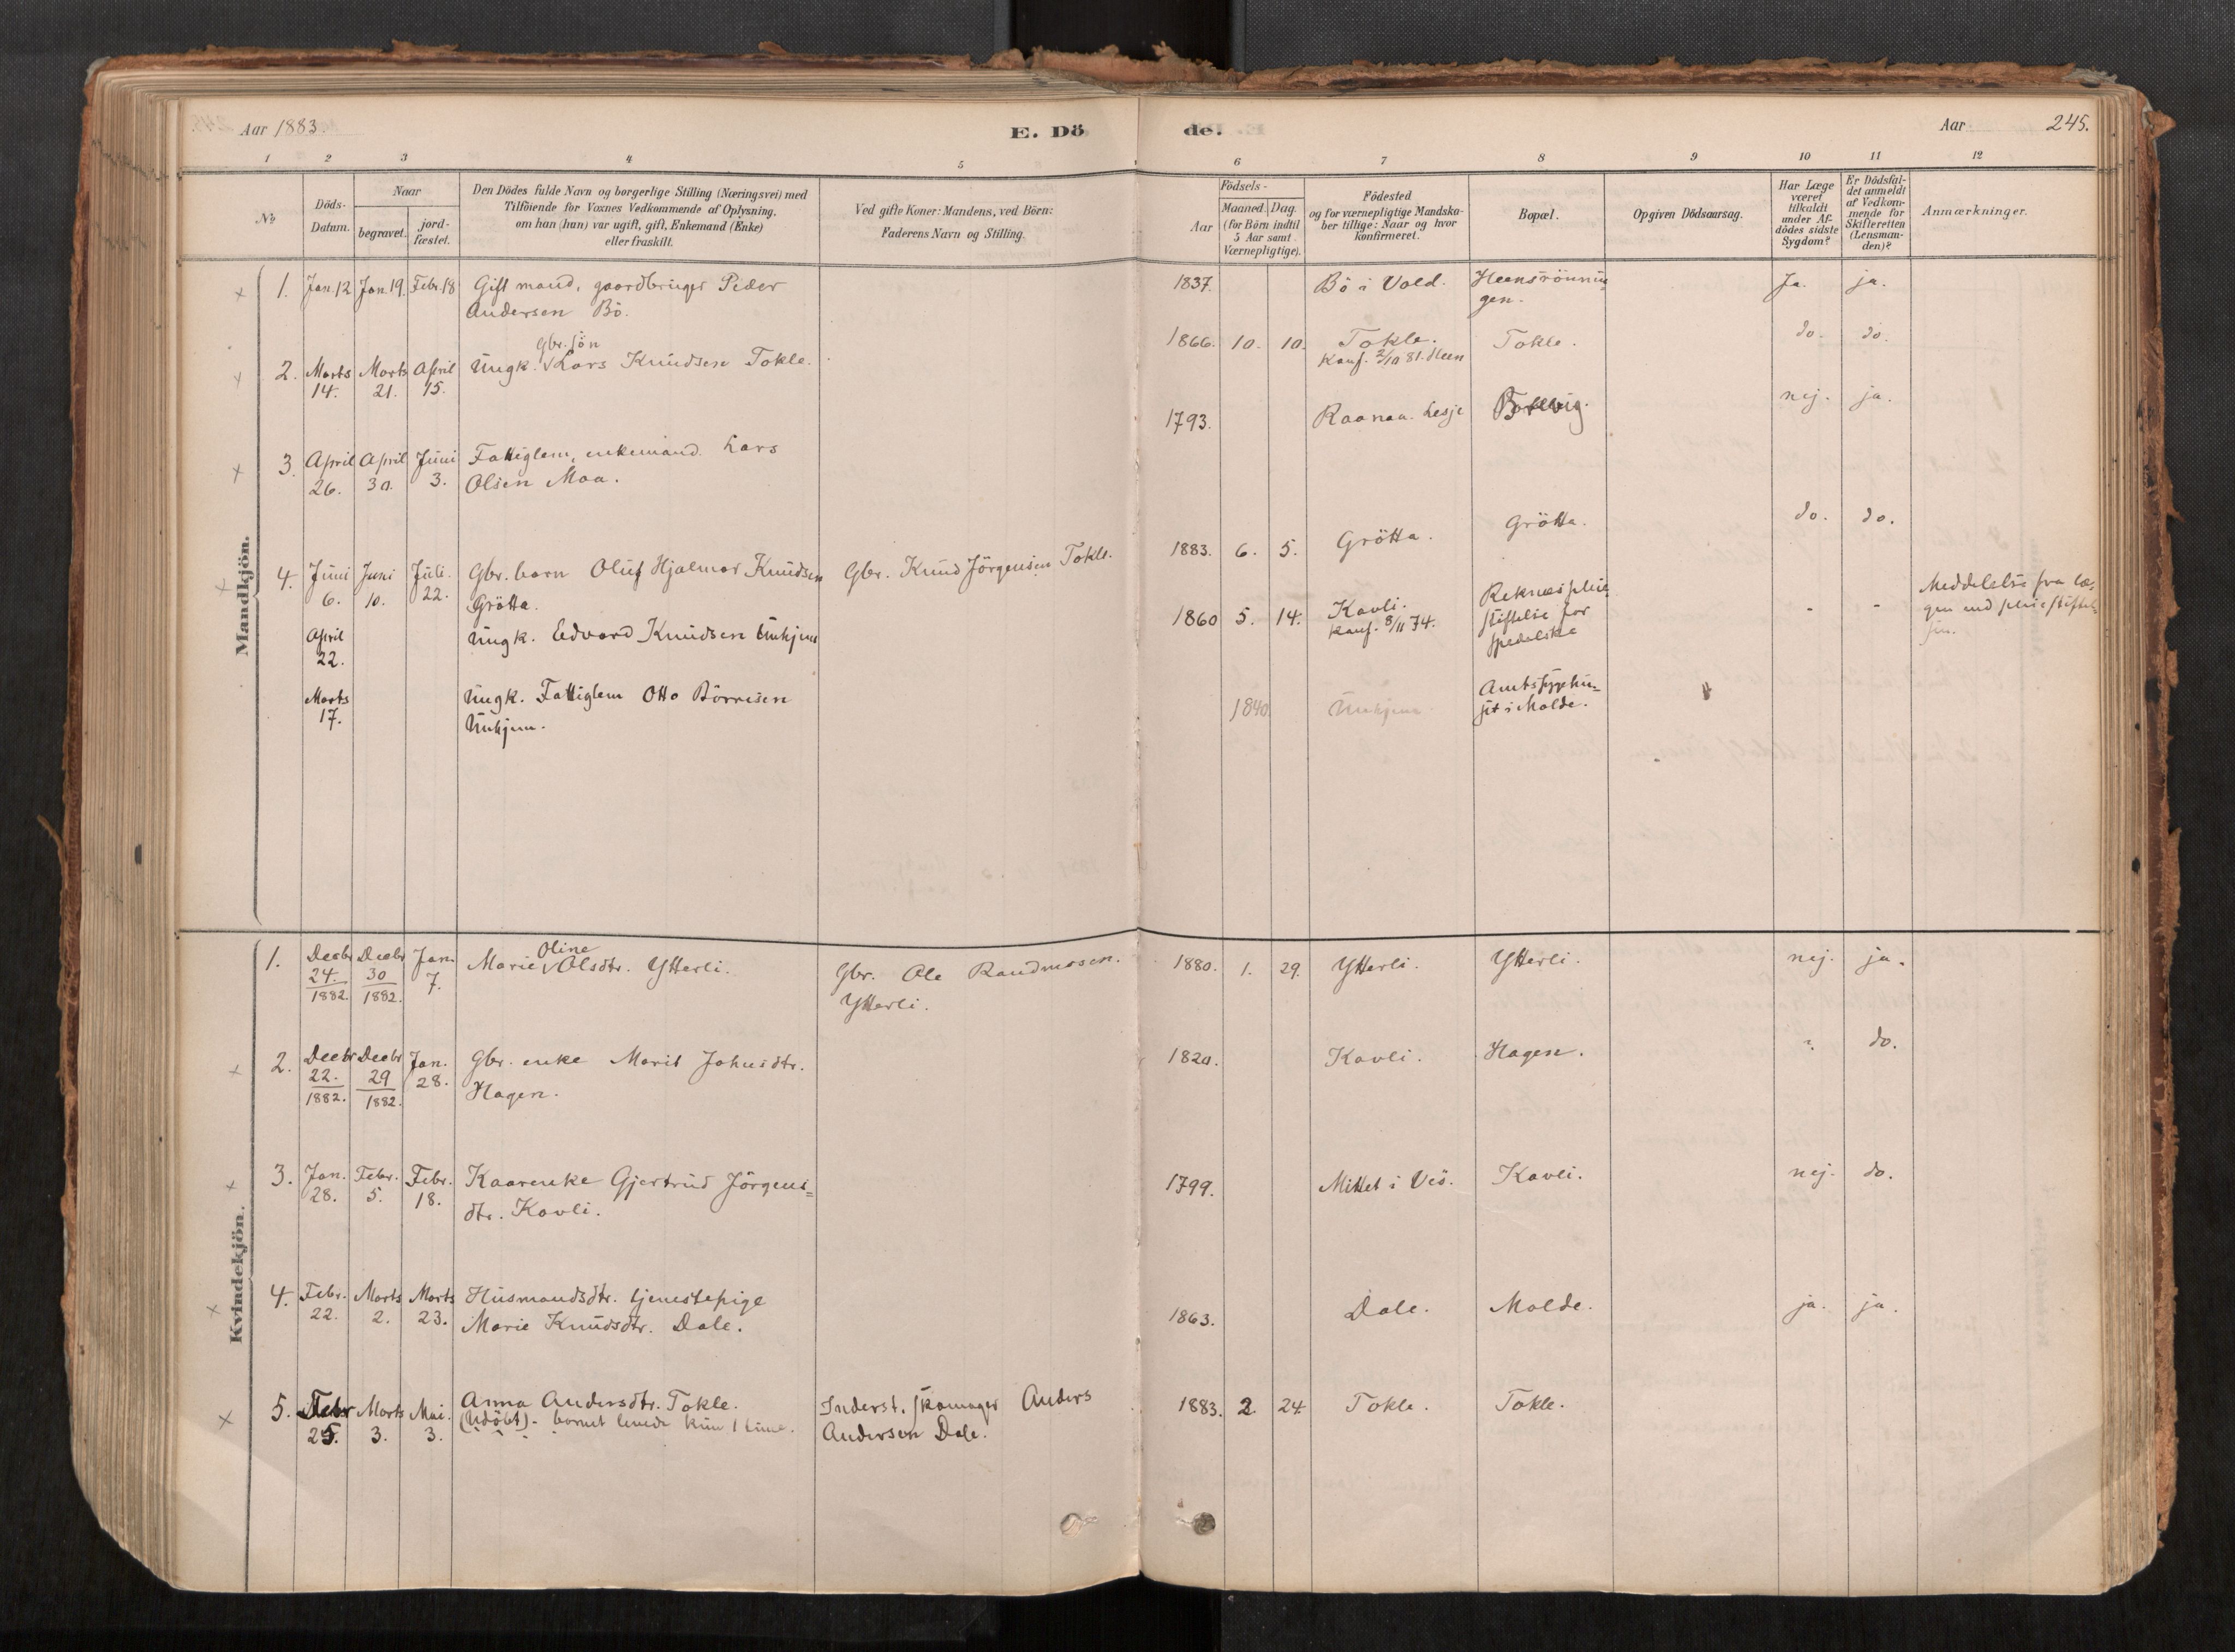 Aar 1883.
E. Dö
de.
Aar
245.
1 2 3 4 5 6 7 8 9 10 11 12
No
Döds-
Datum.
Naar
begravet.
jord-
fæstet.
Den Dödes fulde Navn og borgerlige Stilling (Næringsvei) med
Tilföiende for Voxnes Vedkommende af Oplysning,
om han (hun) var ugift, gift, Enkemand (Enke)
eller fraskilt.
Ved gifte Koner: Mandens, ved Börn:
Faderens Navn og Stilling.
Födsels-
Aar
Maaned. Dag.
(for Börn indtil
5 Aar samt
Værnepligtige).
Födested
og for værnepligtige Mandska-
ber tillige: Naar og hvor
konfirmeret.
Bopæl.
Opgiven Dödsaarsag.
Har Læge
været
tilkaldt
under Af-
dödes sidste
Sygdom?
Er Dödsfal-
det anmeldt
af Vedkom-
mende for
Skifteretten
(Lensman-
den)?
Anmærkninger.
Mandkjön.
1. Jan. 12 Jan. 19. Febr. 18 Gift mand, gaardbruger Peder 1837. Bö i Vold. Heensrönnin-
Andersen Bö. gen. Ja. ja.
Gbr. sön
2. Marts Marts April Ungk. Lars Knudsen Tokle. 1866. 10. 10. Tokle. Tokle. do. do.
14. 21. 15. Konf. 2/10 81. Heen
3. April April Juni Fattiglem, enkemand. Lars 1793. Raanaa. Lesje nej. ja.
26. 30. 3. Olsen Moa.
4. Juni Juni Juli. Gbr. barn Oluf Hjalmar Knudsen Gbr. Knud Jörgensen Tokle. 1883. 6. 5. Grötta. Grötta. do. do.
6. 10. 22. Grötta.
April Ungk. Edvard Knudsen Unhjem 1860 5. 14. Kavli. Reknæs pleie-
22. Konf. 8/11 74. stiftelse for
spedalske - -
Meddelelse fra læ-
gen ved pleiestiftel-
sen.
Marts Ungk. Fattiglem Otto Börresen 1840 Unhjem Amtssygehu-
17. Unhjem. set i Molde.
Kvindekjön.
Oline
1. Decbr Decbr Jan. Marie Olsdtr. Ytterli. Gbr. Ole Raudmosen. 1880. 1. 29. Ytterli. Ytterli. nej. ja.
24. 30 7. Ytterli.
1882. 1882.
2. Decbr Decbr Jan. Gbr. enke Marit Johnsdtr. 1820. Kavli. Hagen. ? do.
22. 29 28. Hagen.
1882. 1882.
3. Jan. Febr. Febr. Kaarenke Gjertrud Jörgens- 1799. Mittet i Veö. Kavli. nej. do.
28. 5. 18. dtr. Kavli.
4. Febr. Marts Marts Husmandsdtr. tjenestepige 1863. Dale. Molde. ja. ja.
22. 2. 23. Marie Knudsdtr. Dale.
5. Febr Marts Mai. Anna Andersdtr. Tokle. Inderst, skomager Anders 1883. 2. 24. Tokle. Tokle.
25. 3. 3. (Udöbt) - barnet levede kun 1 time. Andersen Dale.